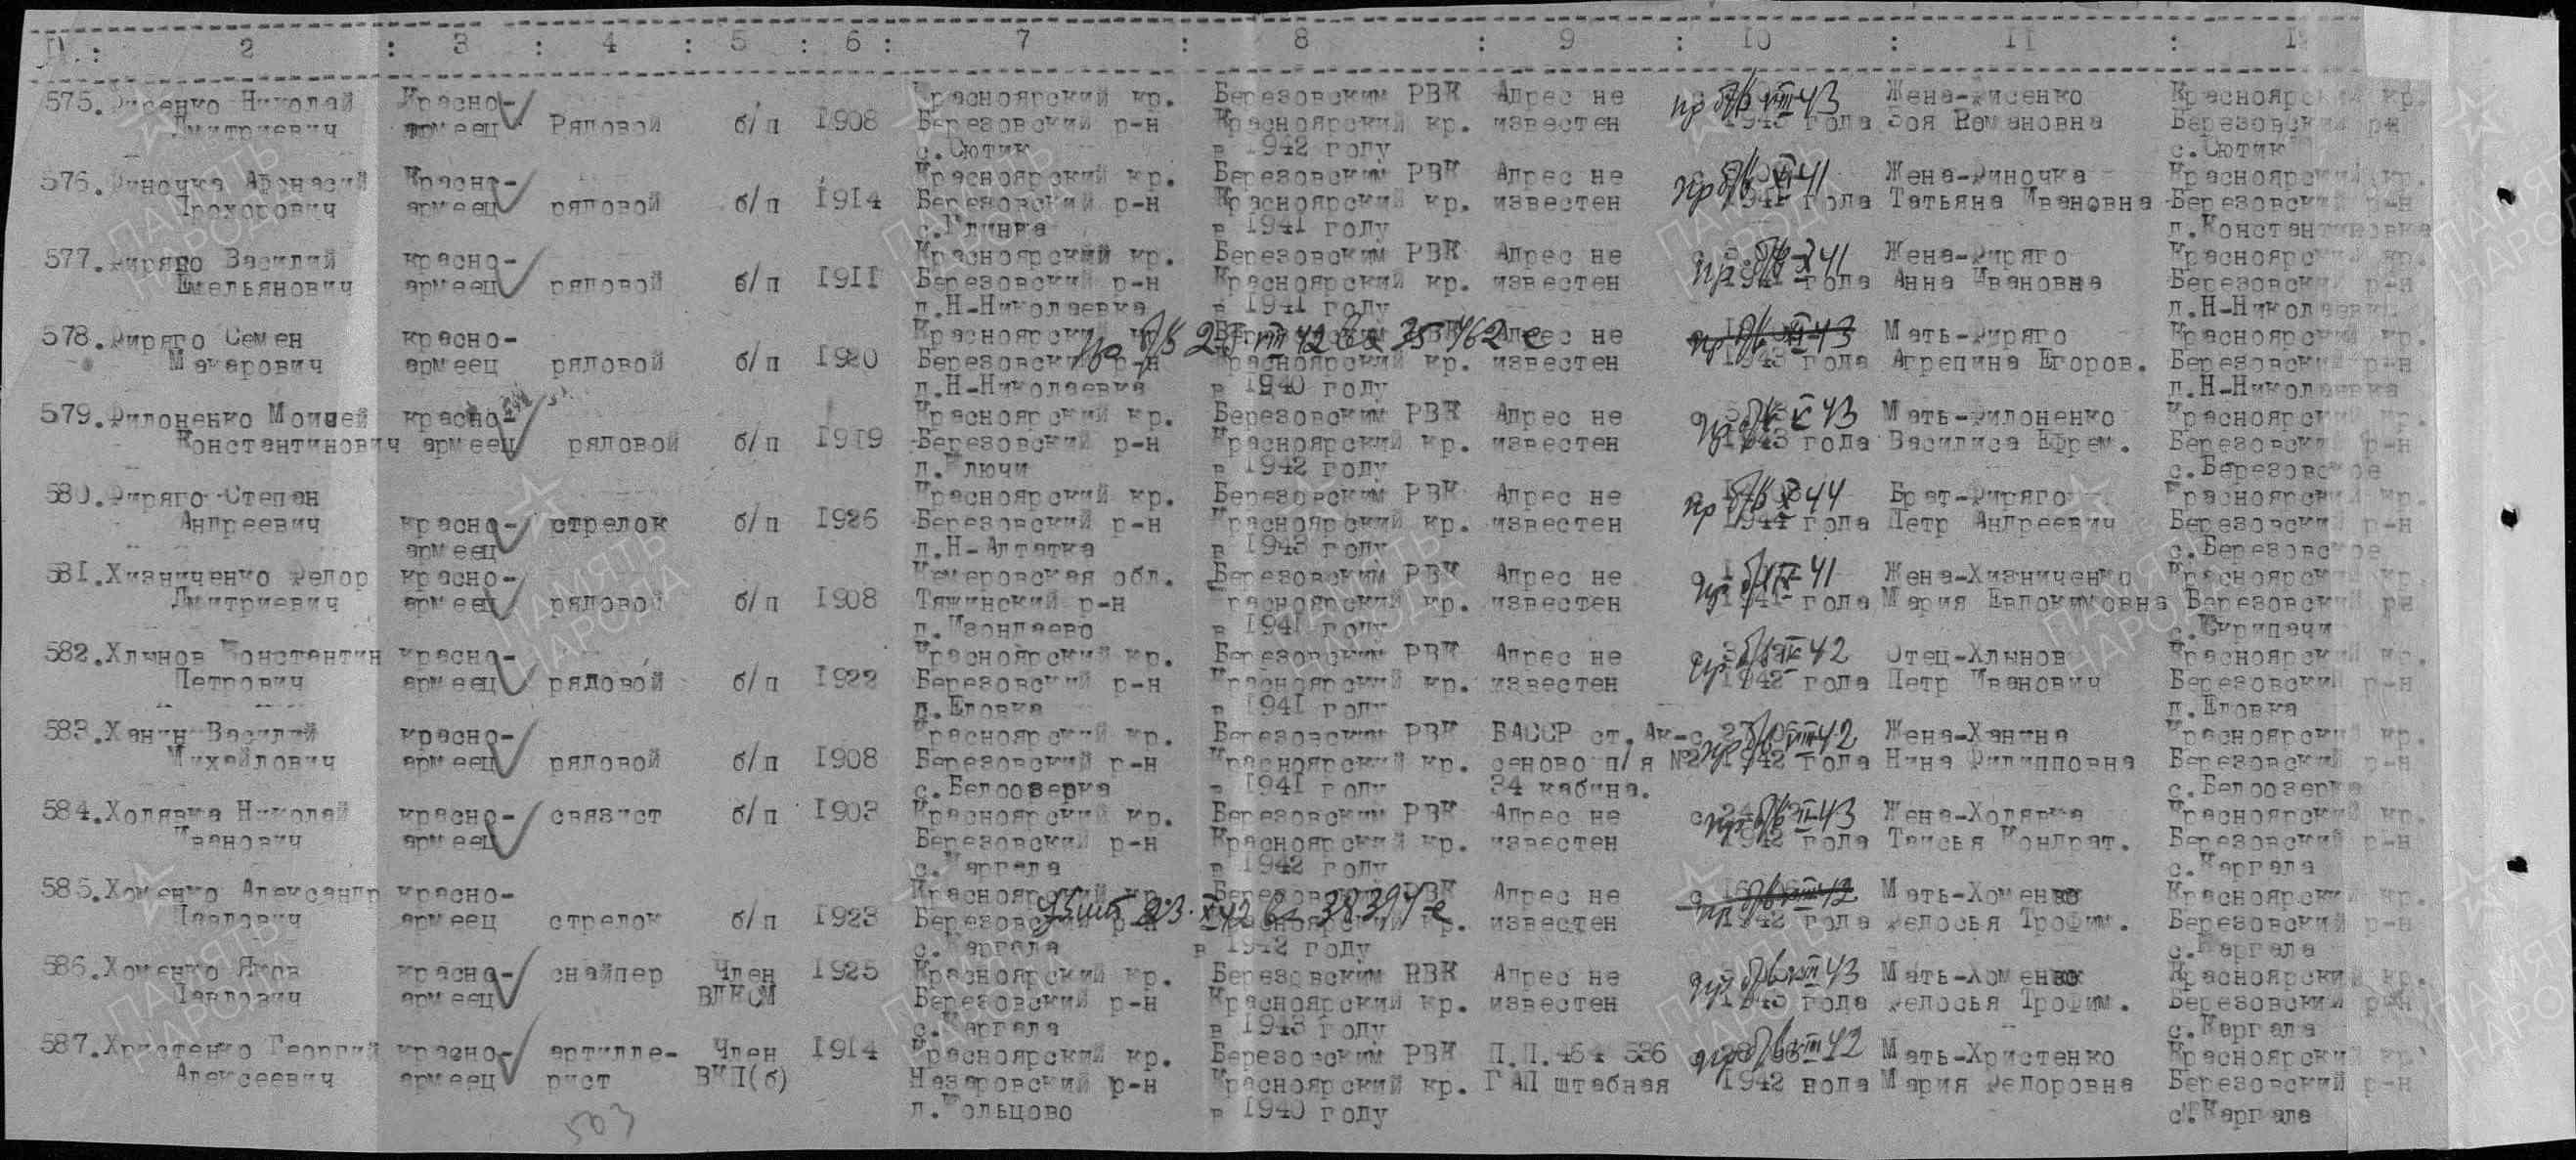 2 : 3 : 4 : 5 : 6 : 7 : 8 : 9 : 10 : 11 :
575. Фисенко Николай Красно- Красноярский кр. Березовским РВК Адрес не пр б/в VIII-43 Жена-Фисенко Красноярский кр.
Дмитриевич армеец Рядовой б/п 1908 Березовский р-н Красноярский кр. известен 1943 года Зоя Романовна Березовский р-н
с.Сютик в 1942 году с.Сютик
576. Финочка Афонасий Красно- Красноярский кр. Березовским РВК Адрес не пр б/в Жена-Финочка Красноярский кр.
Прохорович армеец рядовой б/п 1914 Березовский р-н Красноярский кр. известен 1941 года Татьяна Ивановна Березовский р-н
с.Глинка в 1941 году д.Константиновка
577. Фиряго Василий красно- Красноярский кр. Березовским РВК Адрес не пр б/в Жена-Фиряго Красноярский кр.
Емельянович армеец рядовой б/п 1911 Березовский р-н Красноярский кр. известен 1941 года Анна Ивановна Березовский р-н
д.Н-Николаевка в 1941 году д.Н-Николаевка
578. Фиряго Семен красно- Красноярский кр. Березовским РВК Адрес не пр б/в Мать-Фиряго Красноярский кр.
Макарович армеец рядовой б/п 1920 Березовский р-н Красноярский кр. известен 1943 года Агрепина Егоров. Березовский р-н
д.Н-Николаевка в 1940 году д.Н-Николаевка
579. Филоненко Моисей красно- Красноярский кр. Березовским РВК Адрес не Мать-Филоненко Красноярский кр.
Константинович армеец рядовой б/п 1919 Березовский р-н Красноярский кр. известен 1943 года Василиса Ефрем. Березовский р-н
д.Ключи в 1942 году с.Березовское
580. Фиряго Степан Красноярский кр. Березовским РВК Адрес не пр б/в Брат-Фиряго Красноярский кр.
Андреевич красно- стрелок б/п 1926 Березовский р-н Красноярский кр. известен 1944 года Петр Андреевич Березовский р-н
армеец д.Н-Алтатка в 1943 году с.Березовское
581. Хизниченко Федор красно- Кемеровская обл. Березовским РВК Адрес не Жена-Хизниченко Красноярский кр.
Дмитриевич армеец рядовой б/п 1908 Тяжинский р-н Красноярский кр. известен 1941 года Мария Евдокимовна Березовский р-н
в 1941 году с.Скрипачи
582. Хлынов Константин красно- Красноярский кр. Березовским РВК Адрес не Отец-Хлынов Красноярский кр.
Петрович армеец рядовой б/п 1922 Березовский р-н Красноярский кр. известен 1942 года Петр Иванович Березовский р-н
д.Еловка в 1941 году д.Еловка
583. Ханин Василий красно- Красноярский кр. Березовским РВК БАССР ст.Ак- Жена-Ханина Красноярский кр.
Михайлович армеец рядовой б/п 1908 Березовский р-н Красноярский кр. сеново п/я №2 1942 года Нина Филипповна Березовский р-н
с.Белоозерка в 1941 году 34 кабина. с.Белоозерка
584. Холявка Николай красно- связист б/п 1903 Красноярский кр. Березовским РВК Адрес не Жена-Холявка Красноярский кр.
Иванович армеец Березовский р-н Красноярский кр. известен 1942 года Таисья Кондрат. Березовский р-н
с.Каргала в 1942 году с.Каргала
585. Хоменко Александр красно- Красноярский кр. Березовский РВК Адрес не Мать-Хоменко Красноярский кр.
Павлович армеец стрелок б/п 1923 Березовский р-н Красноярский кр. известен 1942 года Федосья Трофим. Березовский р-н
с.Каргала в 1942 году с.Каргала
586. Хоменко Яков красно- снайпер Член 1925 Красноярский кр. Березовским РВК Адрес не Мать-Хоменко Красноярский кр.
Павлович армеец ВЛКСМ Березовский р-н Красноярский кр. известен 1943 года Федосья Трофим. Березовский р-н
с.Каргала в 1943 году с.Каргала
587. Христенко Георгий красно- артилле- Член 1914 Красноярский кр. Березовским РВК П.П.464 586 Мать-Христенко Красноярский кр.
Алексеевич армеец рист ВКП(б) Назаровский р-н Красноярский кр. ГАП штабная 1942 нода Мария Федоровна Березовский р-н
д.Кольцово в 1940 году с.Каргала
503